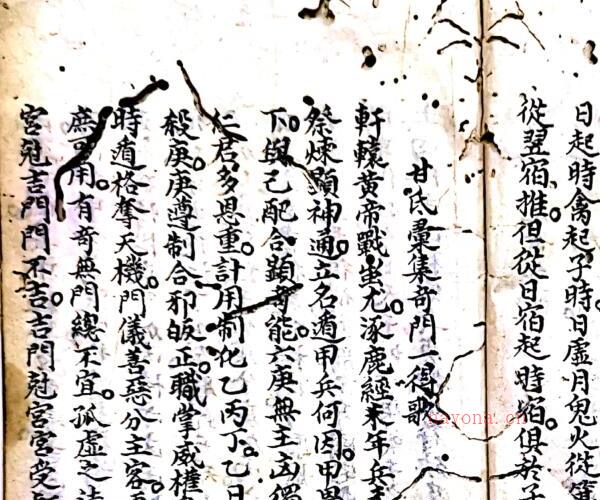 日起時禽起子時日虛月鬼火從箕
從翌宿推但從日宿起時宿俱於子
甘氏彙集奇門一得歌
軒轅黃帝戰蚩尤涿鹿經末年兵
祭煉顯神通立名遁甲兵何因甲
下與乙配合顯奇能六庚無主凶
仁君多恩重計用制化乙丙丁乙日
殺庚庚遵制合邪皈正職掌威權
時遁格奪天機門儀善惡分主客
庶可用有奇無門總不宜孤虛之
宮尅吉門門不吉吉門尅宮宮受